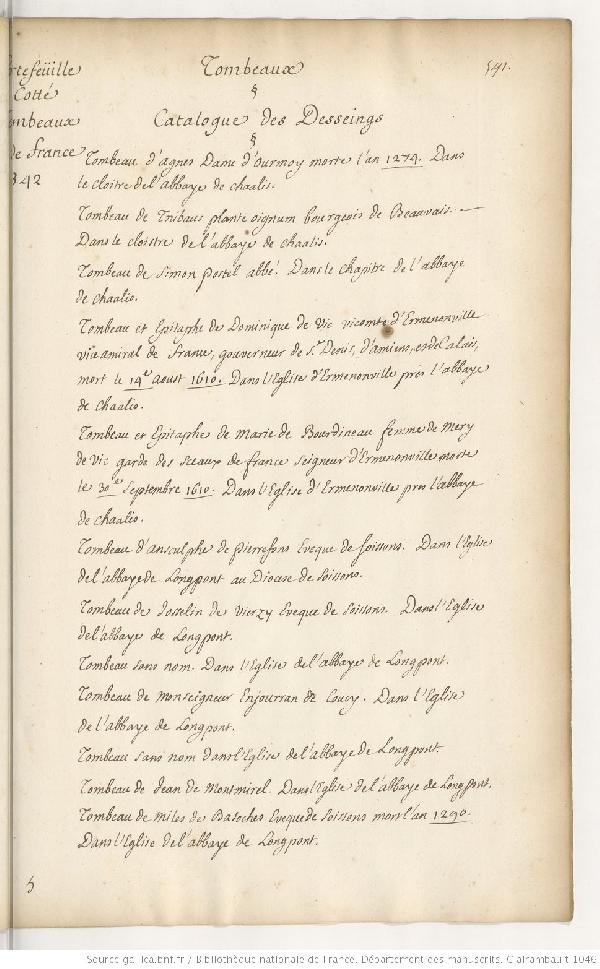 Tombeaux
541.
§
rtefeüille
Cotté
ombeaux
de france
342
Catalogue des Desseings
§
Tombeau d'agnes Danu d'ourmoy morte l'an 1274. Dans
le cloitre de l'abbaye de chaalis.
Tombeau de Tribaus plante oignum bourgeois de Beauvais.
Dans le cloistre de l'abbaye de chaalis.
Tombeau de Simon postel abbé. Dans le chapitre de l'abbaye
de chaalis.
Tombeau et Epitaphe de Dominique de Vic vicomte d'Ermenonville
vice amiral de france, gouverneur de St. Denis, d'amiens, et de Calais,
mort le 14e. aoust 1610. Dans l'Eglise d'Ermenonville près l'abbaye
de chaalis.
Tombeau et Epitaphe de Marie de Bourdineau femme de Mery
de Vic garde des sceaux de france seigneur d'Ermenonville morte
le 30e. Septembre 1610. Dans l'Eglise d'Ermenonville pres l'abbaye
de chaalis.
Tombeau d'ansculphe de pierrefons Eveque de soissons. Dans l'Eglise
de l'abbaye de Longpont au Diocese de soissons.
Tombeau de Josselin de Vierzy Eveque de Soissons. Dans l'Eglise
de l'abbaye de Longpont.
Tombeau sans nom. Dans l'Eglise de l'abbaye de Longpont.
Tombeau de Monseigneur Enjourran de Coucy. Dans l'Eglise
de l'abbaye de Longpont.
Tombeau sans nom dans l'Eglise de l'abbaye de Longpont.
Tombeau de Jean de Montmirel. Dans l'Eglise de l'abbaye de Longpont.
Tombeau de Miles de Basoches Eveque de Soissons mort l'an 1290.
Dans l'Eglise de l'abbaye de Longpont.
Source gallica.bnf.fr / Bibliothèque nationale de France. Département des manuscrits. Clairambault 1046